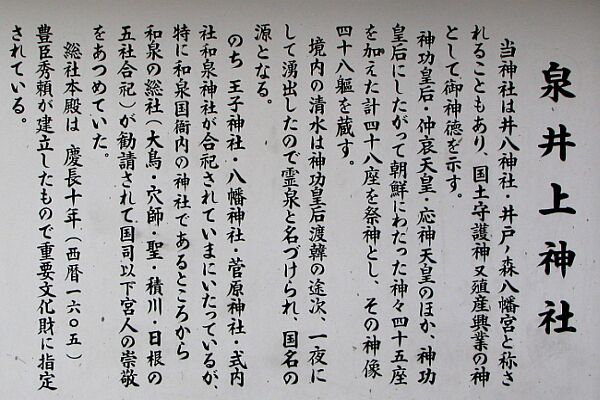 泉井上神社
当神社は井八神社・井戸ノ森八幡宮と称さ
れることもあり、国土守護神又殖産興業の神
として御神徳を示す。
神功皇后・仲哀天皇・応神天皇のほか、神功
皇后にしたがって朝鮮にわたった神々四十五座
を加えた計四十八座を祭神とし、その神像
四十八軀を蔵す。
境内の清水は神功皇后渡韓の途次、一夜に
して湧出したので霊泉と名づけられ、国名の
源となる。
のち 王子神社・八幡神社・菅原神社・式内
社和泉神社が合祀されていまにいたっているが、
特に和泉国衙内の神社であるところから
和泉の総社（大鳥・穴師・聖・積川・日根の
五社合祀）が勧請されて国司以下宮人の崇敬
をあつめていた。
総社本殿は 慶長十年（西暦一六〇五）
豊臣秀頼が建立したもので重要文化財に指定
されている。